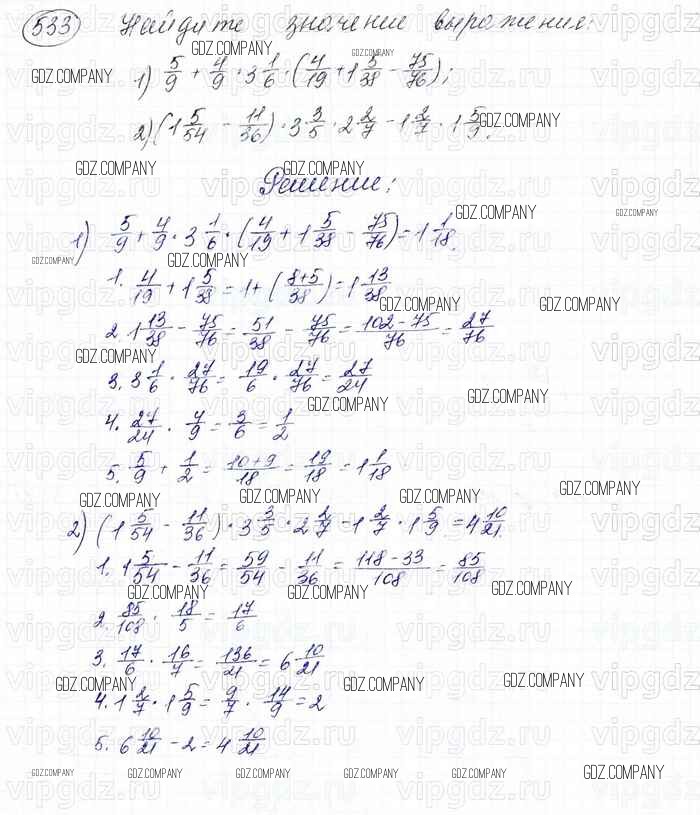 533 Найдите значение выражения:
1) 5/9 + 4/9 · 3 1/6 · (4/19 + 1 5/38 − 75/76);
2) (1 5/54 − 11/36) · 3 3/5 · 2 2/7 − 1 2/7 · 1 5/9.
Решение:
1) 5/9 + 4/9 · 3 1/6 · (4/19 + 1 5/38 − 75/76) = 1 1/18.
1. 4/19 + 1 5/38 = 1 + (8+5/38) = 1 13/38
2. 1 13/38 − 75/76 = 51/38 − 75/76 = 102−75/76 = 27/76
3. 3 1/6 · 27/76 = 19/6 · 27/76 = 27/24
4. 27/24 · 4/9 = 3/6 = 1/2
5. 5/9 + 1/2 = 10+9/18 = 19/18 = 1 1/18
2) (1 5/54 − 11/36) · 3 3/5 · 2 2/7 − 1 2/7 · 1 5/9 = 4 10/21.
1. 1 5/54 − 11/36 = 59/54 − 11/36 = 118−33/108 = 85/108
2. 85/108 · 18/5 = 17/6
3. 17/6 · 16/7 = 136/21 = 6 10/21
4. 1 2/7 · 1 5/9 = 9/7 · 14/9 = 2
5. 6 10/21 − 2 = 4 10/21
GDZ.COMPANY
vipgdz.ru